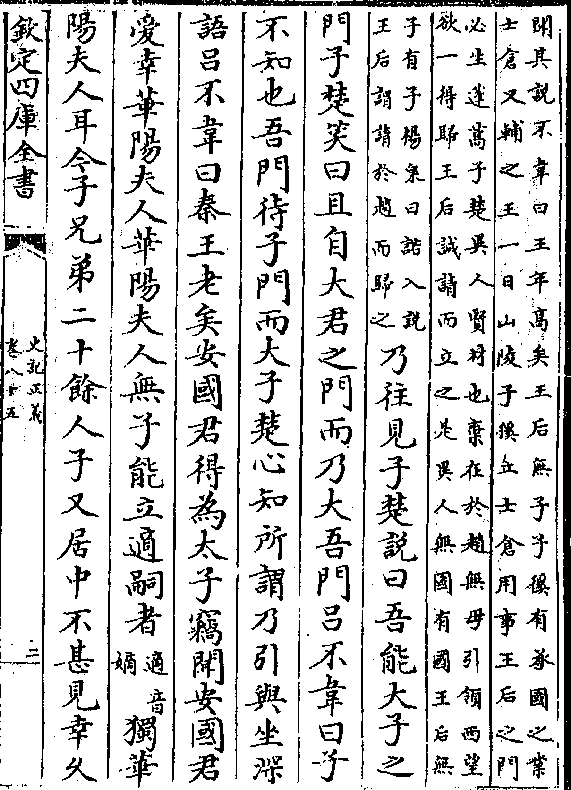 聞其說不韋曰王年高矣王后無子子傒有承國之業
士倉又輔之王一日山陵子傒立士倉用事王后之門
必生蓬蒿子楚異人賢材也棄在於趙無母引領西望
欲一得歸王后誠請而立之是異人無國有國王后無
子有子楊泉曰諾入說
王后謂請於趙而歸之
乃往見子楚說曰吾能大子之
門子楚笑曰且自大君之門而乃大吾門呂不韋曰子
不知也吾門待子門而大子楚心知所謂乃引與坐深
語呂不韋曰秦王老矣安國君得為太子竊聞安國君
愛幸華陽夫人華陽夫人無子能立適嗣者
適音
嫡
獨華
陽夫人耳今子兄弟二十餘人子又居中不甚見幸久
欽定四庫全書
史記正義
卷八十五
二